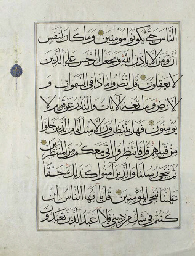 الناس حتى يكونوا مؤمنين وما كان لنفس
ان تؤمن الا باذن الله ويجعل الرجس على الذين
لا يعقلون قل انظروا ماذا في السموات و
الارض وما تغني الايات والنذر عن قوم لا
يؤمنون فهل ينتظرون الا مثل ايام الذين خلوا
من قبلهم قل فانتظروا اني معكم من المنتظرين
ثم ننجي رسلنا والذين امنوا كذلك حقا
علينا ننج المؤمنين قل يا ايها الناس ان
كنتم في شك من ديني فلا اعبد الذين تعبدون